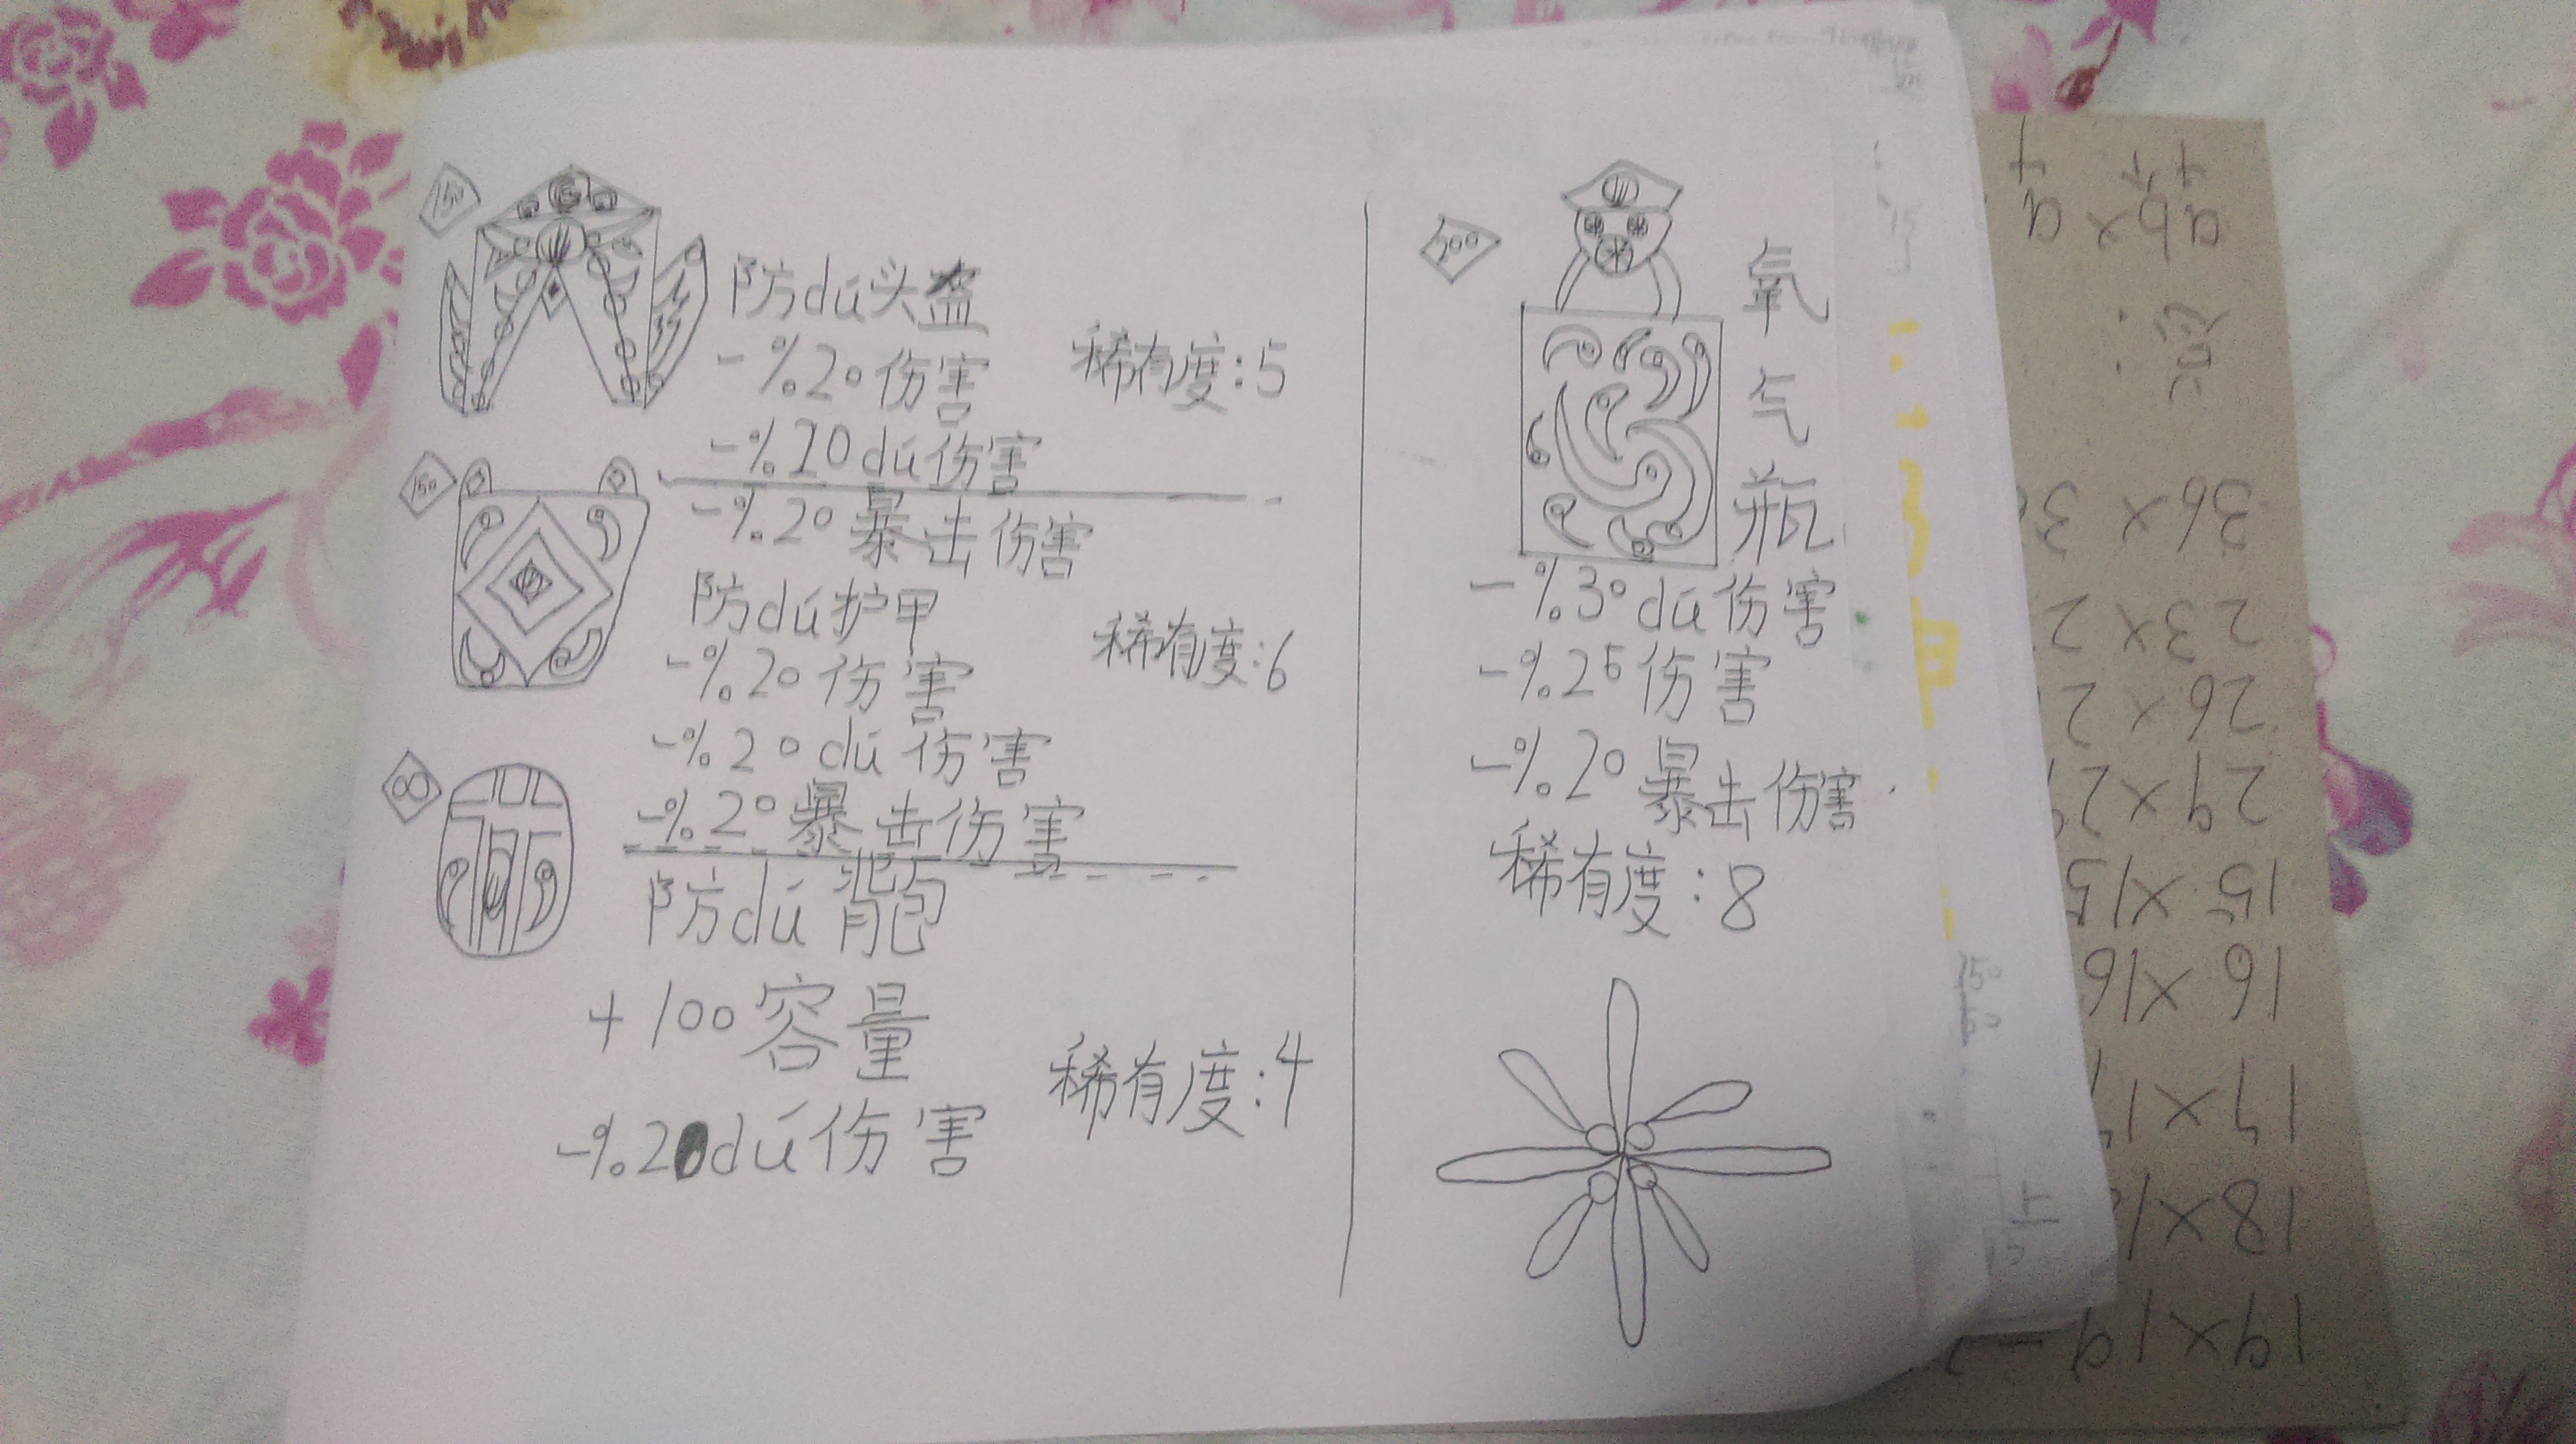 150
防dú头盔
-%20伤害
稀有度:5
-%20dú伤害
150
-%20暴击伤害
防dú护甲
稀有度:6
-%20伤害
-%20dú伤害
80
-%20暴击伤害
防dú背包
+100容量
稀有度:4
-%20dú伤害
200
氧
气
瓶
-%30dú伤害
-%25伤害
-%20暴击伤害
稀有度:8
19×19=
18×1
17×1
16×16
15×15
29×29
26×2
23×2
36×3